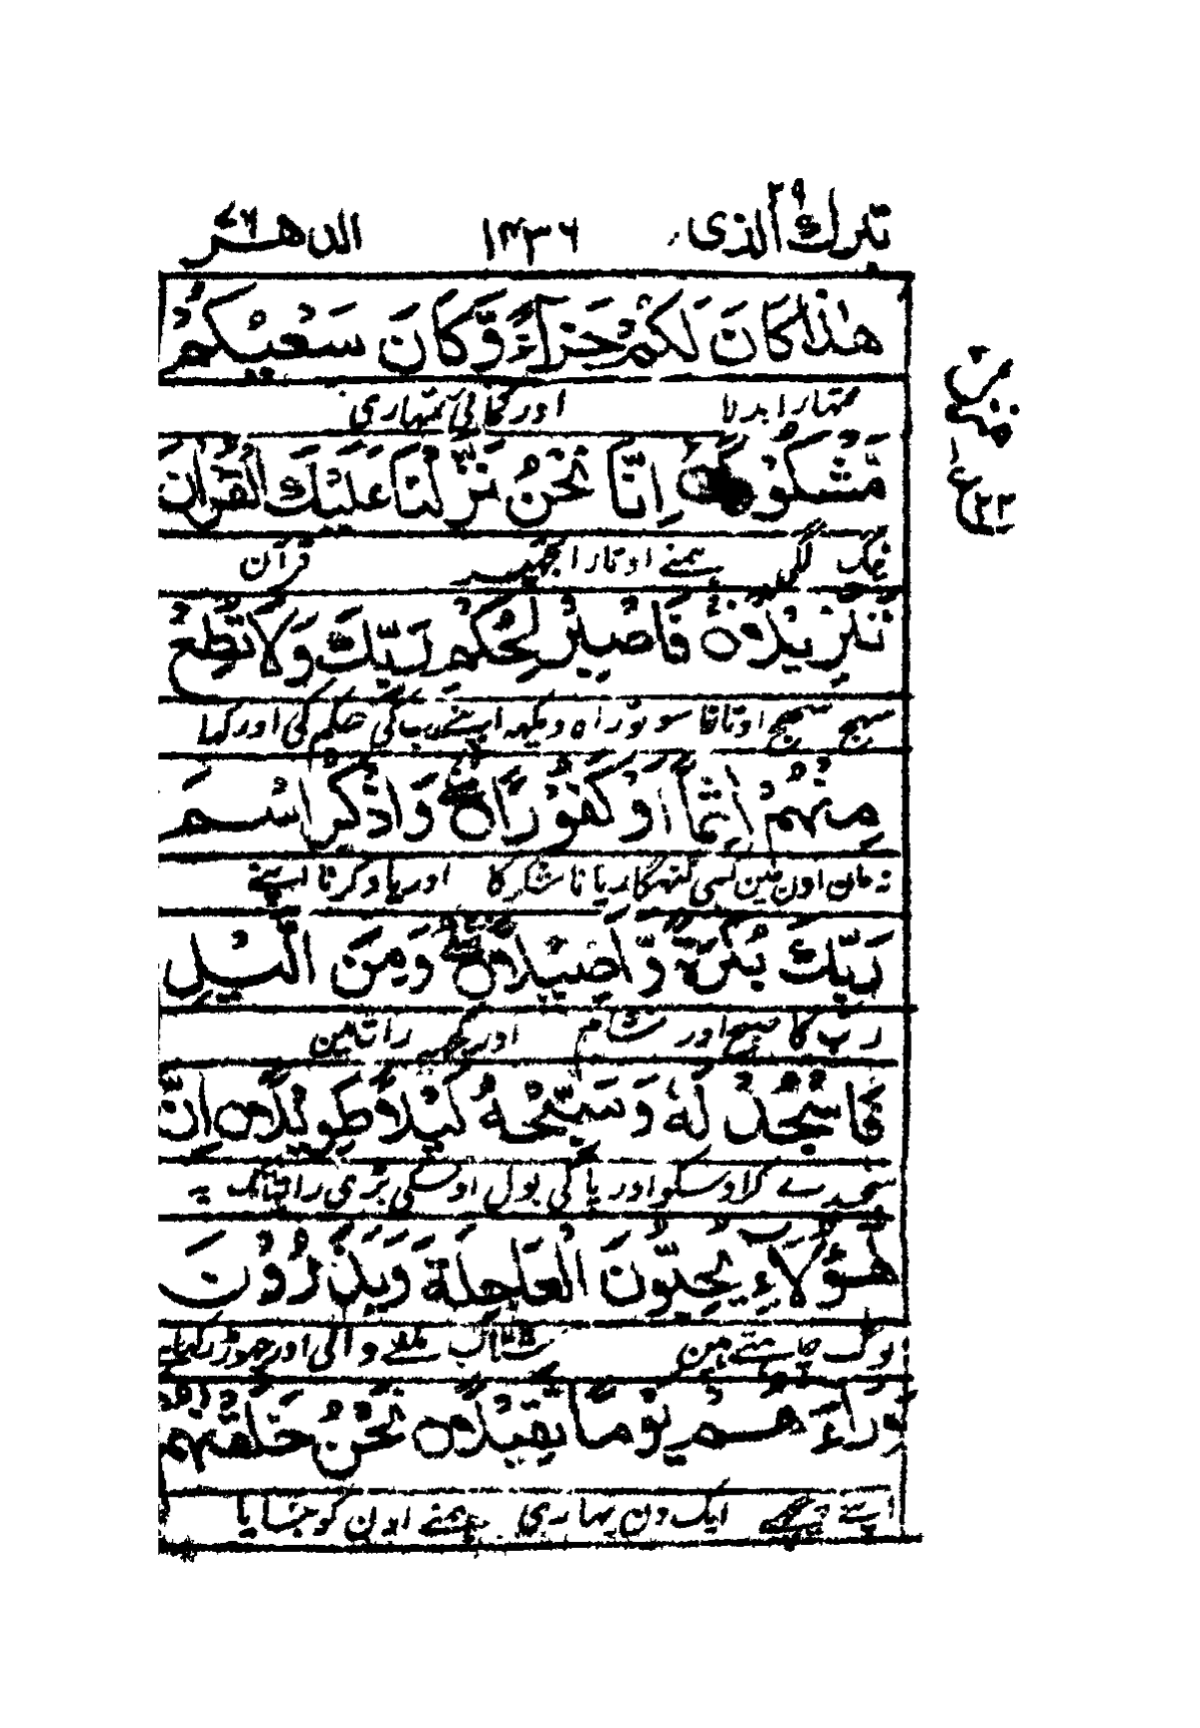 تبرك الذى ٢٩ ١٤٣٦ الدهر ٧٦
هٰذَا كَانَ لَكُمْ جَزَآءً وَّكَانَ سَعْيُكُمْ
تمہارا بدلا اور کمائی تمہاری
مَّشْكُوْرًا اِنَّا نَحْنُ نَزَّلْنَا عَلَيْكَ الْقُرْاٰنَ
نیگ لگی ہمنے اوتارا تجھپر قرآن
تَنْزِيْلًا فَاصْبِرْ لِحُكْمِ رَبِّكَ وَلَا تُطِعْ
سہج سہج اوتارنا سو تو راہ دیکہہ اپنے رب کی حکم کی اور کہا
مِنْهُمْ اٰثِمًا اَوْ كَفُوْرًا وَاذْكُرِ اسْمَ
نہ مان اون مین کسی گنہگار یا ناشکر کا اور یاد کرتا اپنے
رَبِّكَ بُكْرَةً وَّاَصِيْلًا وَمِنَ الَّيْلِ
رب کا صبح اور شام اور کچہہ رات مین
فَاسْجُدْ لَهٗ وَسَبِّحْهُ لَيْلًا طَوِيْلًا اِنَّ
سجدے کر اوسکو اور پاکی بول اوسکی بڑی رات تک یہ
هٰٓؤُلَآءِ يُحِبُّوْنَ الْعَاجِلَةَ وَيَذَرُوْنَ
لوگ چاہتے ہین شتاب ملنے والی اور چہوڑ رکہا ہے
وَرَآءَهُمْ يَوْمًا ثَقِيْلًا نَحْنُ خَلَقْنٰهُمْ
اپنے پیچہے ایک دن بہاری ہمنے اون کو بنایا